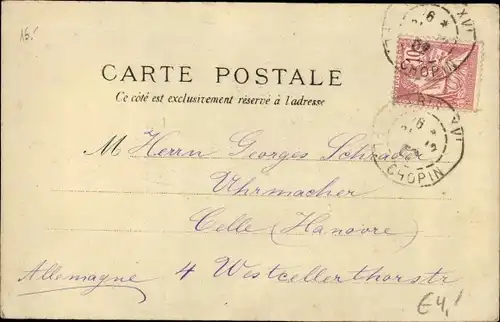 15.-
XVI
CHOPIN
10
CARTE POSTALE
Ce côté est exclusivement réservé à l'adresse
XVI
CHOPIN
M Herrn Georges Schrader
Uhrmacher
Celle (Hanovre)
Allemagne 4 Westcellerthorstr
€4,-